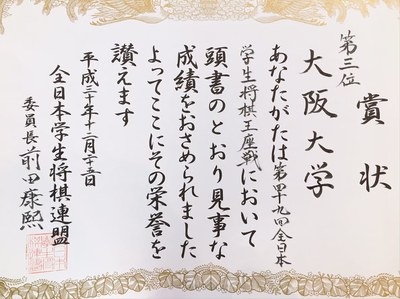 賞状
第三位
大阪大学
あなたがたは第四十九回全日本
学生将棋王座戦において
頭書のとおり見事な
成績をおさめられました
よってここにその栄誉を
讃えます
平成三十年十二月二十五日
全日本学生将棋連盟
委員長 前田康熙